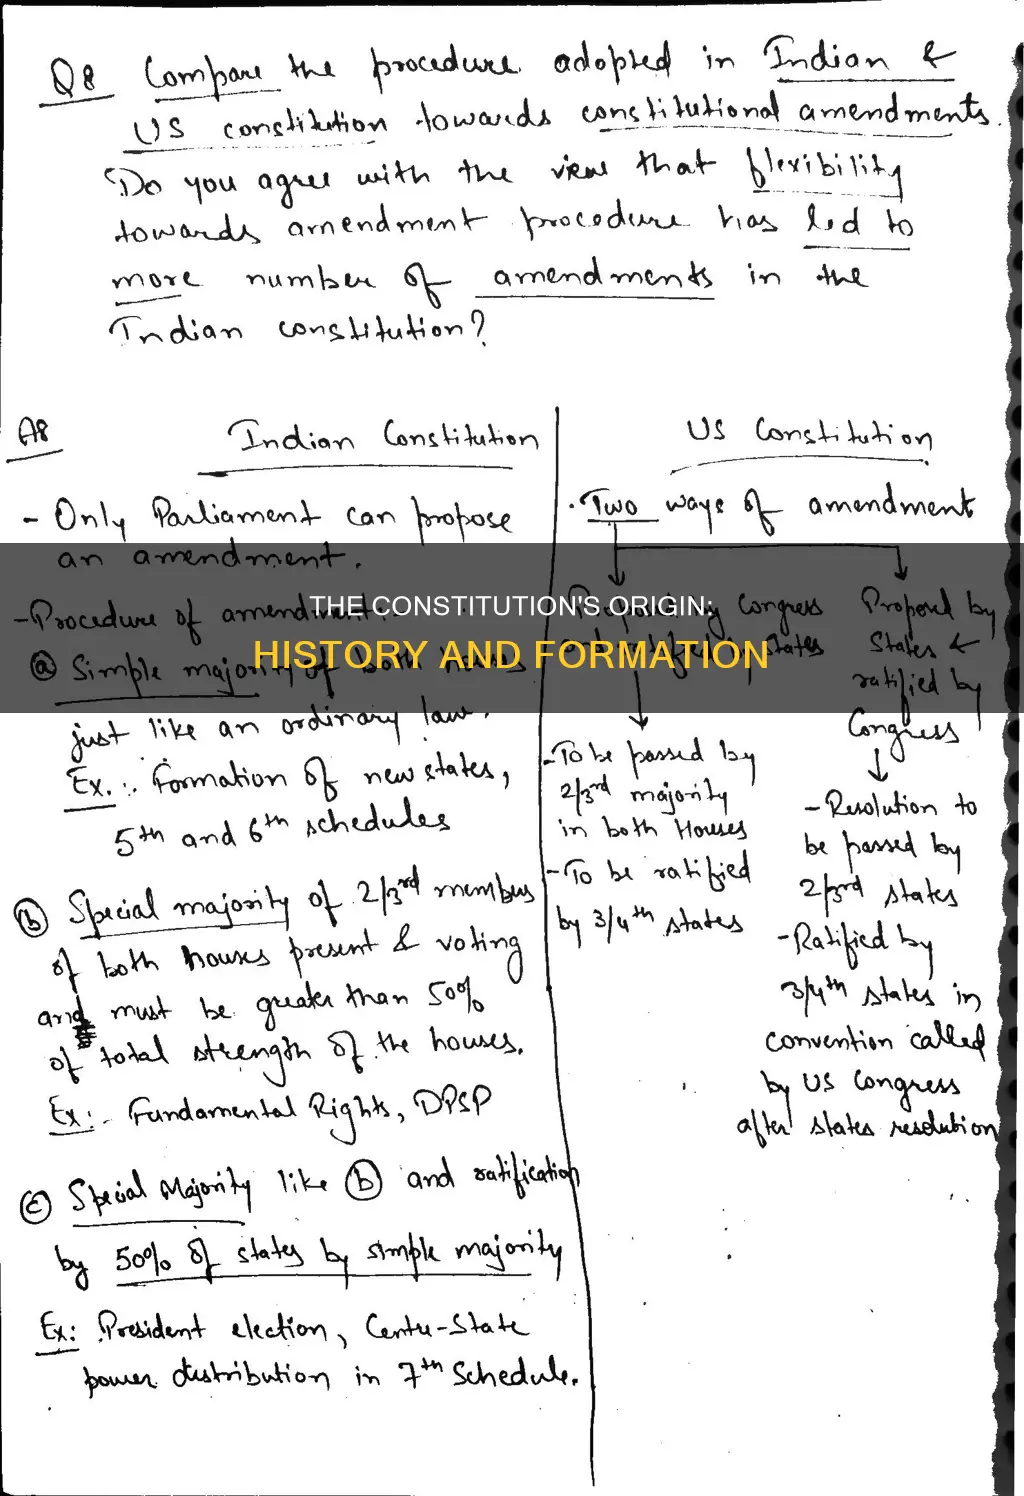 Q8 Compare the procedure adopted in Indian &
US constitution towards constitutional amendments.
Do you agree with the view that flexibility
towards amendment procedure has led to
more number of amendments in the
Indian constitution?
A8
Indian Constitution
- Only Parliament can propose
an amendment.
- Procedure of amendment:-
THE CONSTITUTION'S ORIGIN:
HISTORY AND FORMATION
ⓐ Simple majority of both houses
just like an ordinary law.
Ex.:. Formation of new states,
5th and 6th schedules
ⓑ Special majority of 2/3rd members
of both houses present & voting
and must be greater than 50%
of total strength of the houses.
Ex:- Fundamental Rights, DPSP
ⓒ Special Majority like ⓑ and ratification
by 50% of states by simple majority
Ex: President election, Centre-State
power distribution in 7th Schedule.
US Constitution
· Two ways of amendment
Congress
states
- To be passed by
2/3rd majority
in both Houses
- To be ratified
by 3/4th states
Proposed by
States &
ratified by
Congress
- Resolution to
be passed by
2/3rd states
- Ratified by
3/4th states in
convention called
by US Congress
after states resolution